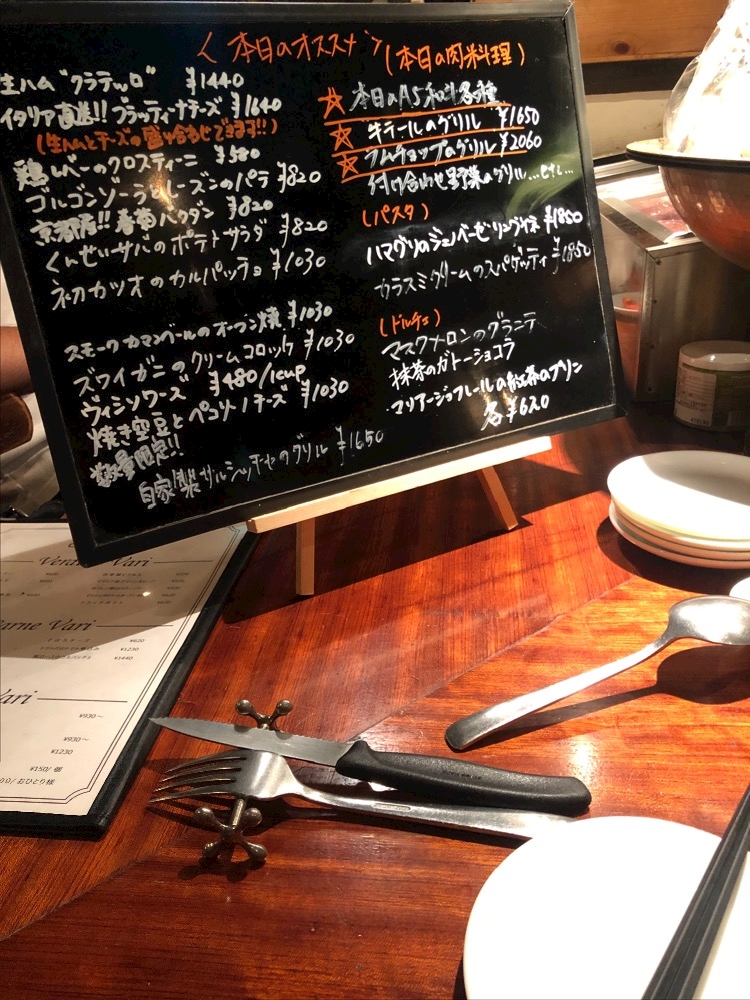 〈本日のオススメ〉
生ハム"クラテッロ" ¥1440
イタリア直送!! ブラッティーナチーズ ¥1640
(生ハムとチーズの盛り合わせできます!!)
鶏レバーのクロスティーニ ¥580
ゴルゴンゾーラとレーズンのパテ ¥820
京都府!! 春菊バクダン ¥820
くんせいサバのポテトサラダ ¥820
初カツオのカルパッチョ ¥1030
スモークカマンベールのオーブン焼 ¥1030
ズワイガニのクリームコロッケ ¥1030
ヴィシソワーズ ¥480/1cup
焼き空豆とペコリーノチーズ ¥1030
数量限定!!
自家製サルシッチャのグリル ¥1650
(本日の肉料理)
☆本日のA5和牛各種
☆牛テールのグリル ¥1650
☆ラムチョップのグリル ¥2060
付け合わせ野菜のグリル...etc...
(パスタ)
ハマグリのジェノベーゼ リングイネ ¥1850
カラスミクリームのスパゲッティ ¥1850
(ドルチェ)
マスクメロンのグラニテ
抹茶のガトーショコラ
マリアージュフレールの紅茶のプリン
各¥620
Verdure Vari
Carne Vari
¥620
¥1230
¥1440
Vari
¥930～
¥930～
¥1230
¥150/個